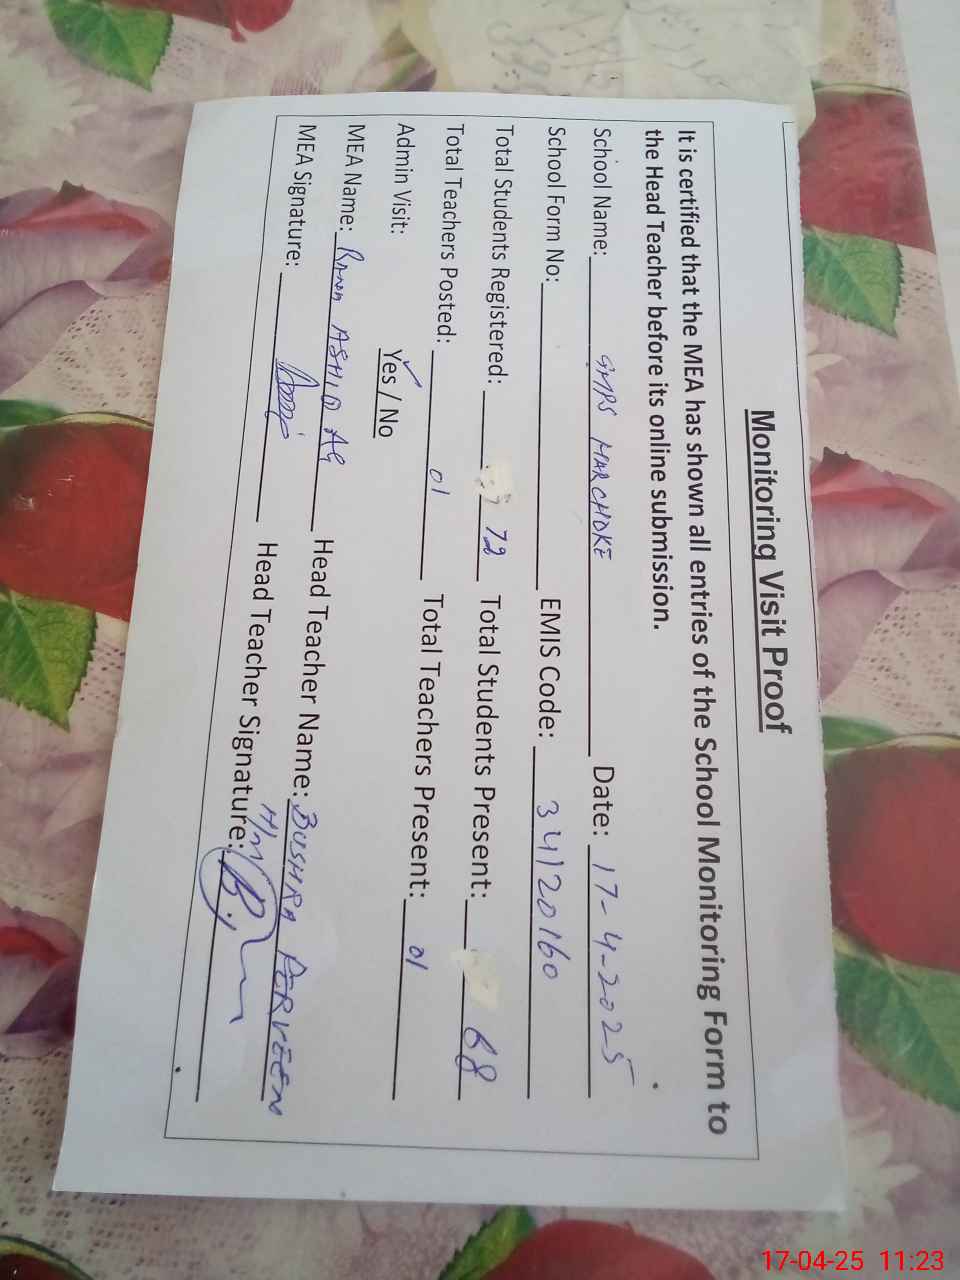 Monitoring Visit Proof
It is certified that the MEA has shown all entries of the School Monitoring Form to
the Head Teacher before its online submission.
School Name: GMPS MARCHOKE Date: 17-4-2025
School Form No: EMIS Code: 34120160
Total Students Registered: 72 Total Students Present: 68
Total Teachers Posted: 01 Total Teachers Present: 01
Admin Visit: Yes / No
MEA Name: Rana ASHIQ Ali Head Teacher Name: BUSHRA PERVEEN
MEA Signature: Head Teacher Signature: H/m
17-04-25 11:23